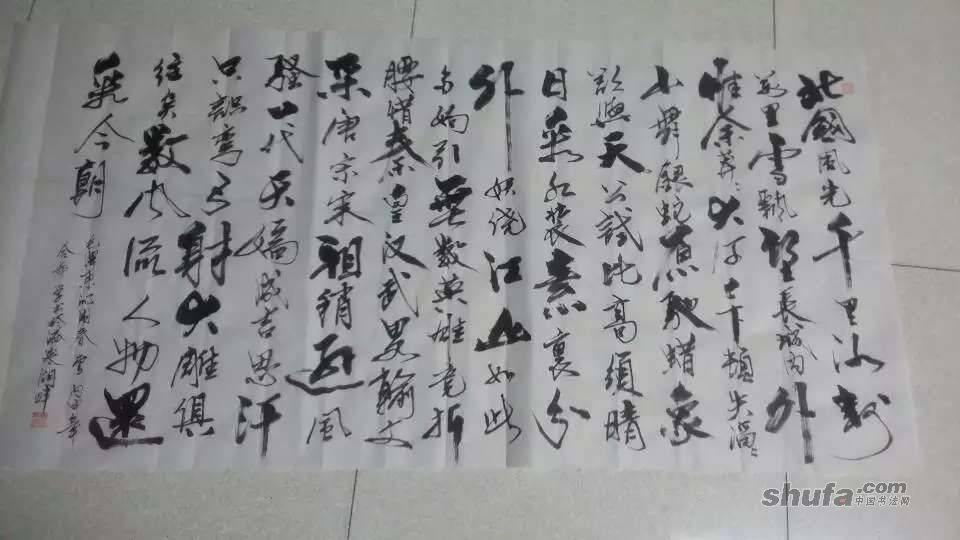 北國風光千里冰封
萬里雪飄望長城内外
惟余莽々大河上下頓失滔々
山舞銀蛇原馳蜡象
欲與天公試比高須晴
日看红装素裹分
外妖娆江山如此
多嬌引無數英雄竞折
腰惜秦皇汉武畧輸文
采唐宗宋祖稍遜風
騷一代天嬌成吉思汗
只識彎弓射大雕俱
往矣數風流人物還
看今朝
毛澤東沁園春雪丙申年
shufa.com
中国书法网